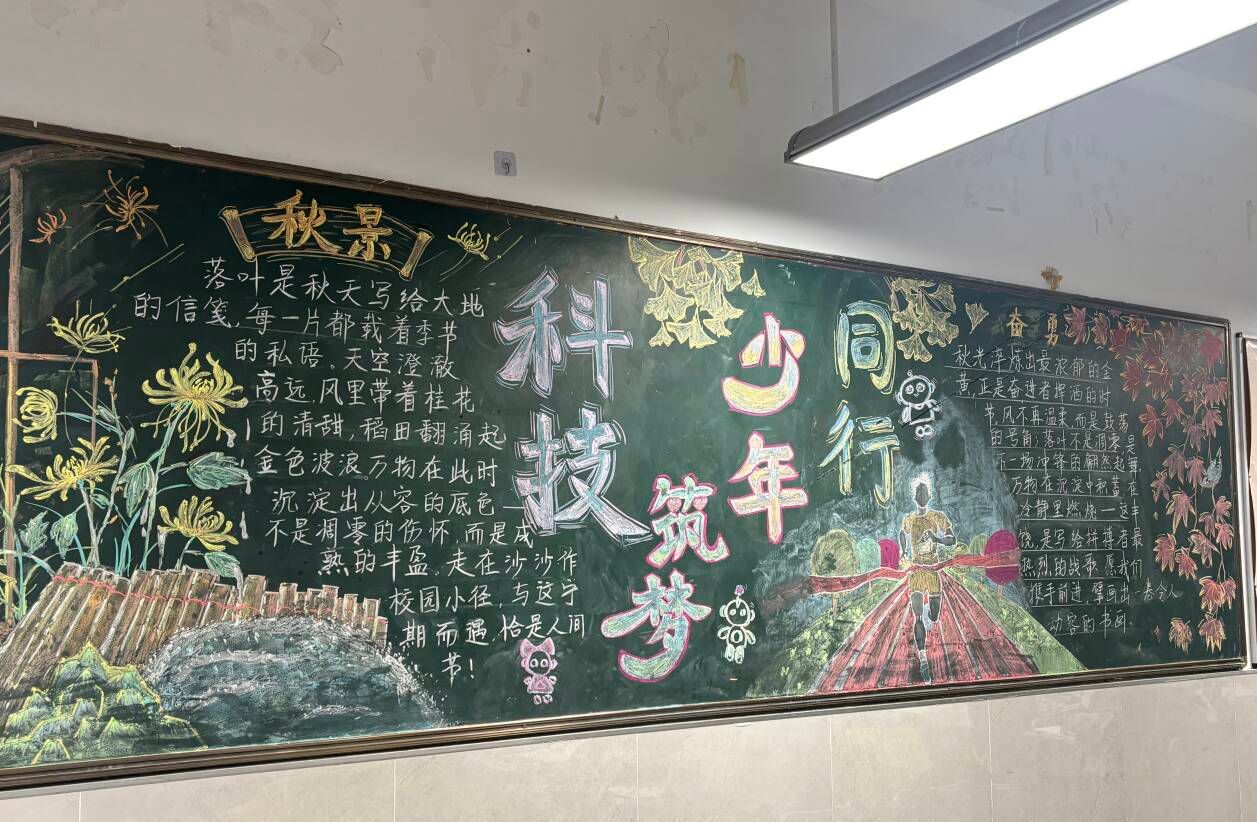 秋景
落叶是秋天写给大地
的信笺,每一片都载着季节
的私语。天空澄澈
高远,风里带着桂花
的清甜,稻田翻涌起
金色波浪。万物在此时
沉淀出从容的底色——
不是凋零的伤怀,而是成
熟的丰盈。走在沙沙作
校园小径,与这宁
期而遇,恰是人间
节!
科技
筑梦
少年
同行
奋勇
秋光淬炼出最浓郁的金
黄,正是奋进者挥洒的时
节,风不再温柔,而是鼓荡
的号角;落叶不是凋零,是
下一场冲锋的翩然起舞
万物在沉淀中积蓄,在
冷静里燃烧——这丰
饶,是写给拼搏者最
热烈的战歌,愿我们
携手前进,擘画出一卷令人
动容的书画.